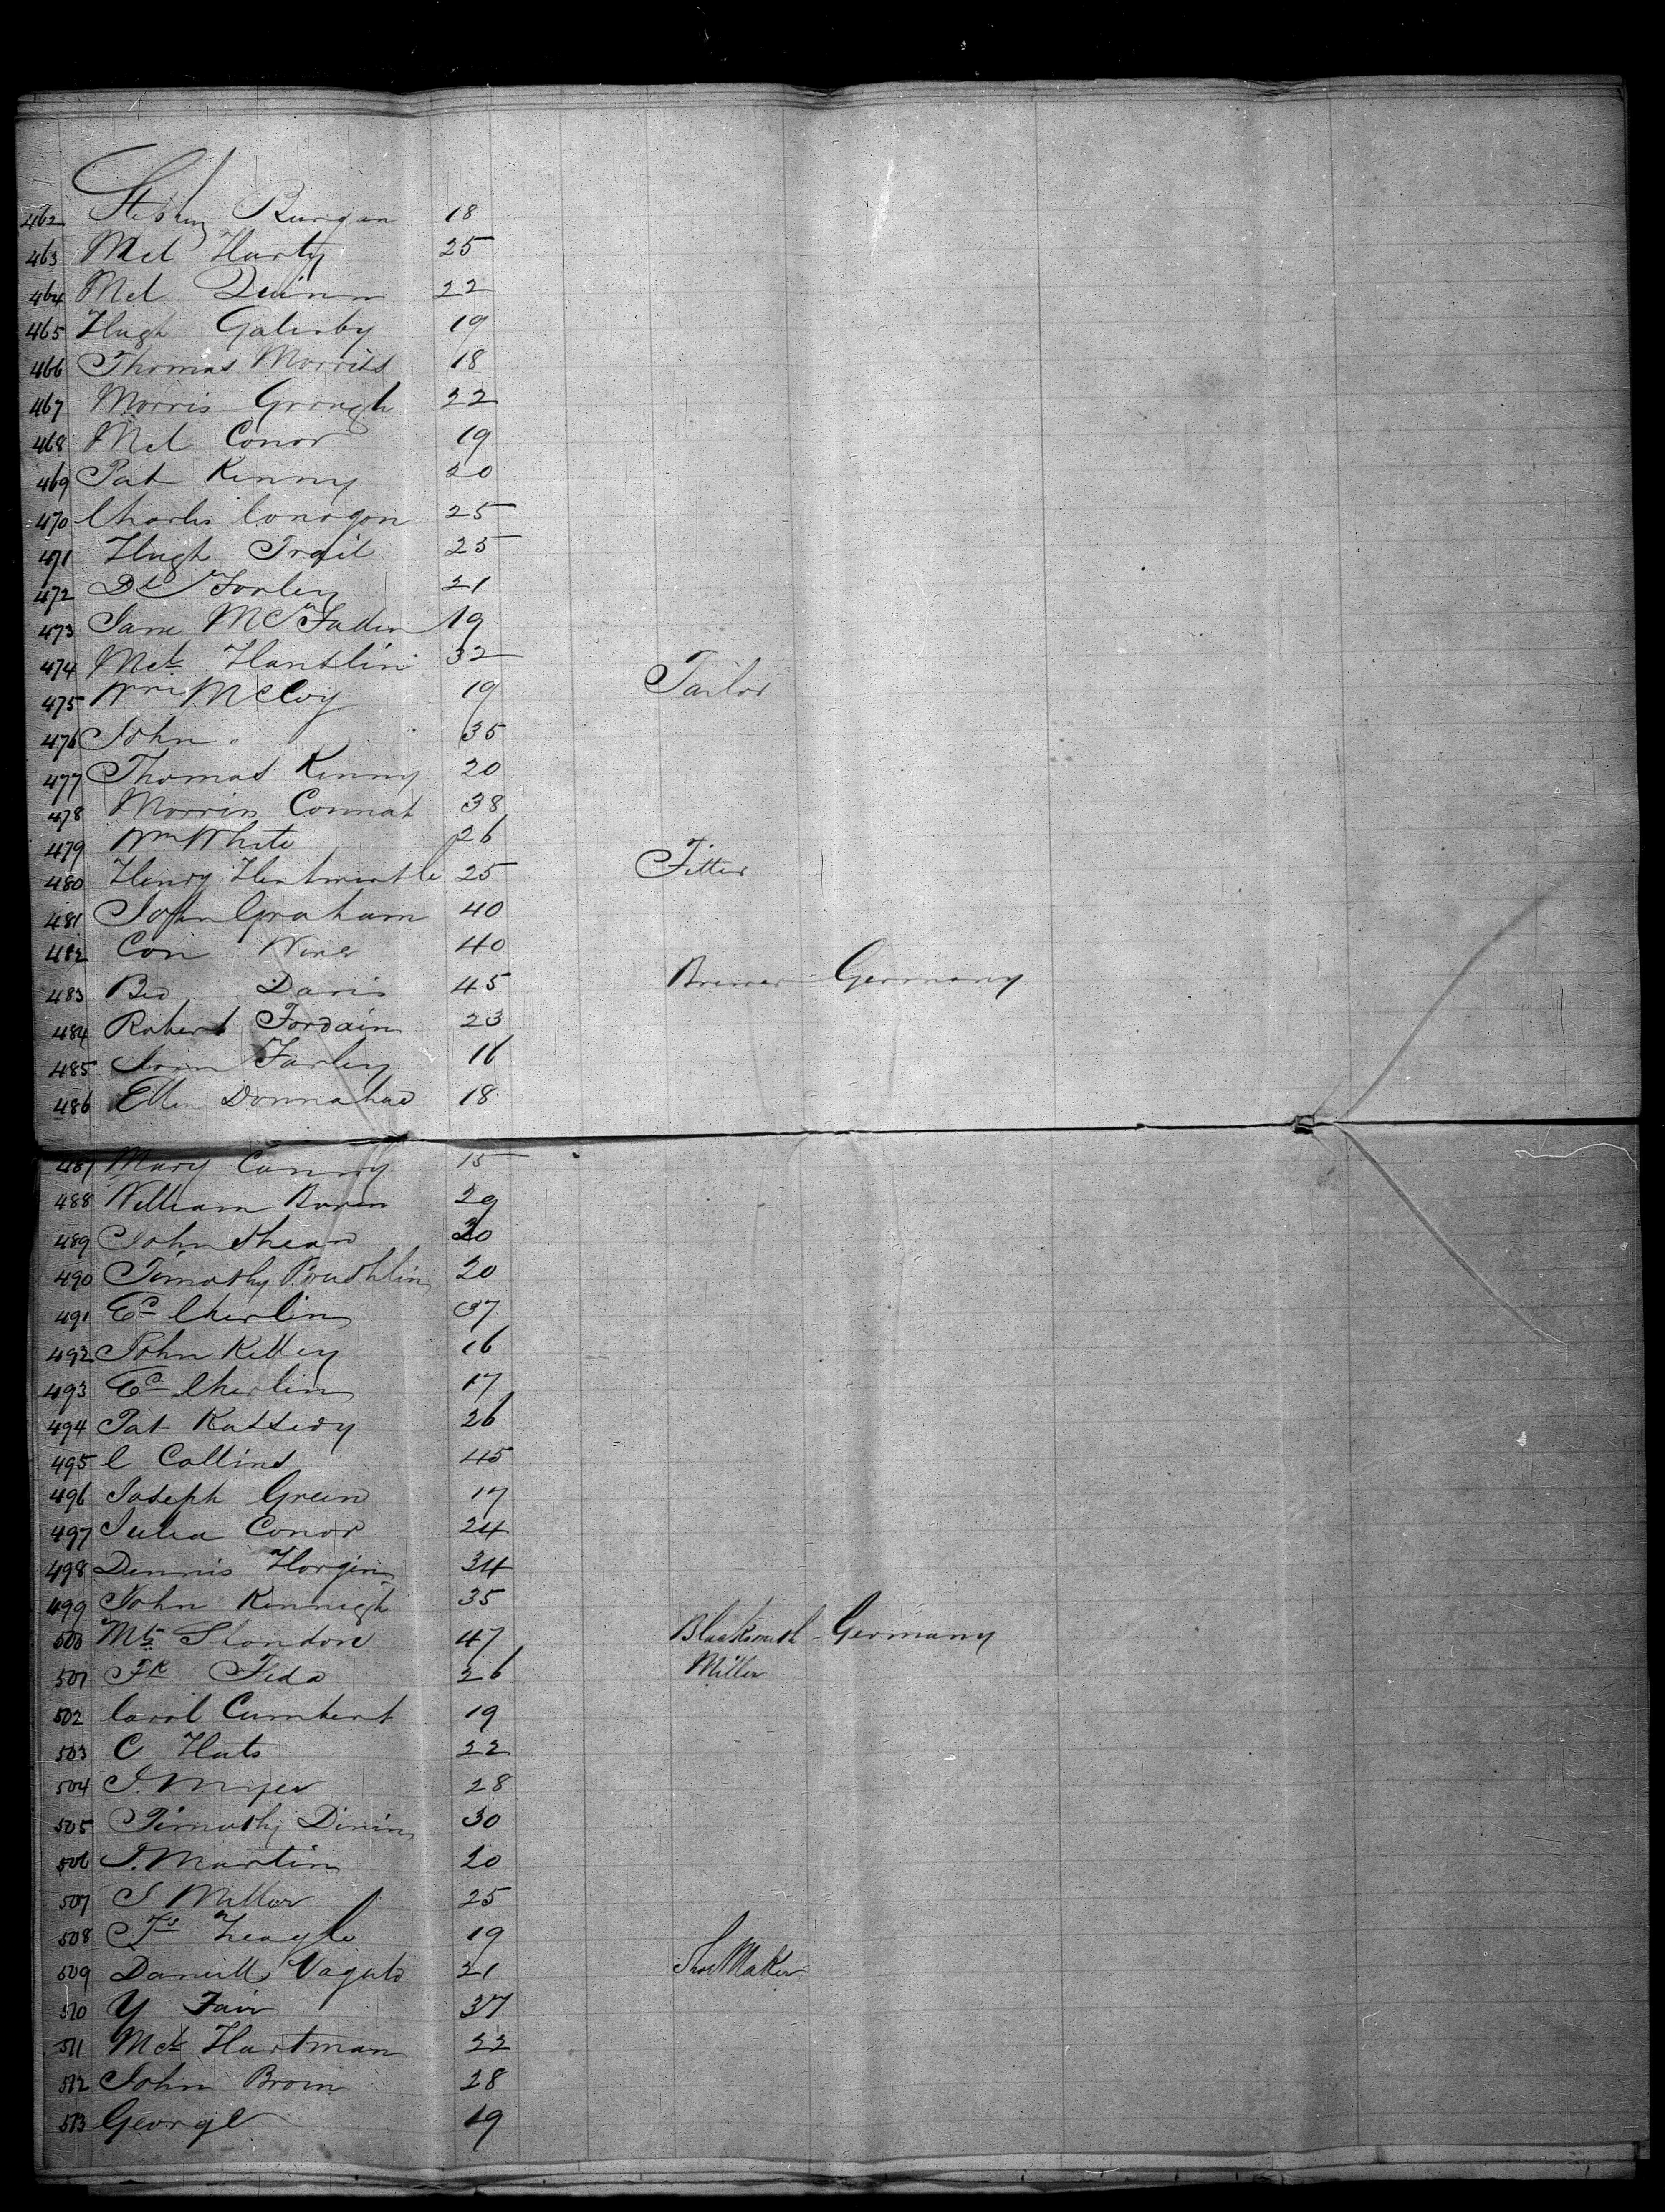 462 Burigan 18
463 Mcl Harty 25
464 Mcl Quinn 22
465 Hugh Galesby 19
466 Thomas Morriss 18
467 Morris Grough 22
468 Mcl Conor 19
469 Pat Kenny 20
470 Charles Conogon 25
471 Hugh Trail 25
472 Dl Forley 21
473 Jane McFaden 19
474 Mck Hantlin 32
475 Wm McCoy 19 Tailor
476 John " 35
477 Thomas Kenny 20
478 Morris Connat 38
479 Wm White 26
480 Henry 25 Fitter
481 John Graham 40
482 Con 40
483 Davis 45 Brewer Germany
484 Robert Fordain 23
485 Farley 16
486 Ellen Donnahue 18
487 Mary Conroy 15
488 William 29
489 John Shean 20
490 Timothy 20
491 Ec Cherlin 37
492 John Kelley 16
493 Ec Cherlin 17
494 Pat Kassedy 26
495 C Collins 45
496 Joseph Green 17
497 Julia Conor 24
498 Dennis Horgin 34
499 John Kennigh 35
500 Mts Slondore 47 Blacksmith Germany
501 Fk Feda 26 Miller
502 Carol Cumbert 19
503 C Hats 22
504 J. Myer 28
505 Timothy Dinin 30
506 J. Martin 20
507 J Miller 25
508 Fs 19
509 Daniell 21 ShoeMaker
510 Y Fair 37
511 Mck Hartman 22
512 John Brown 28
513 George 19